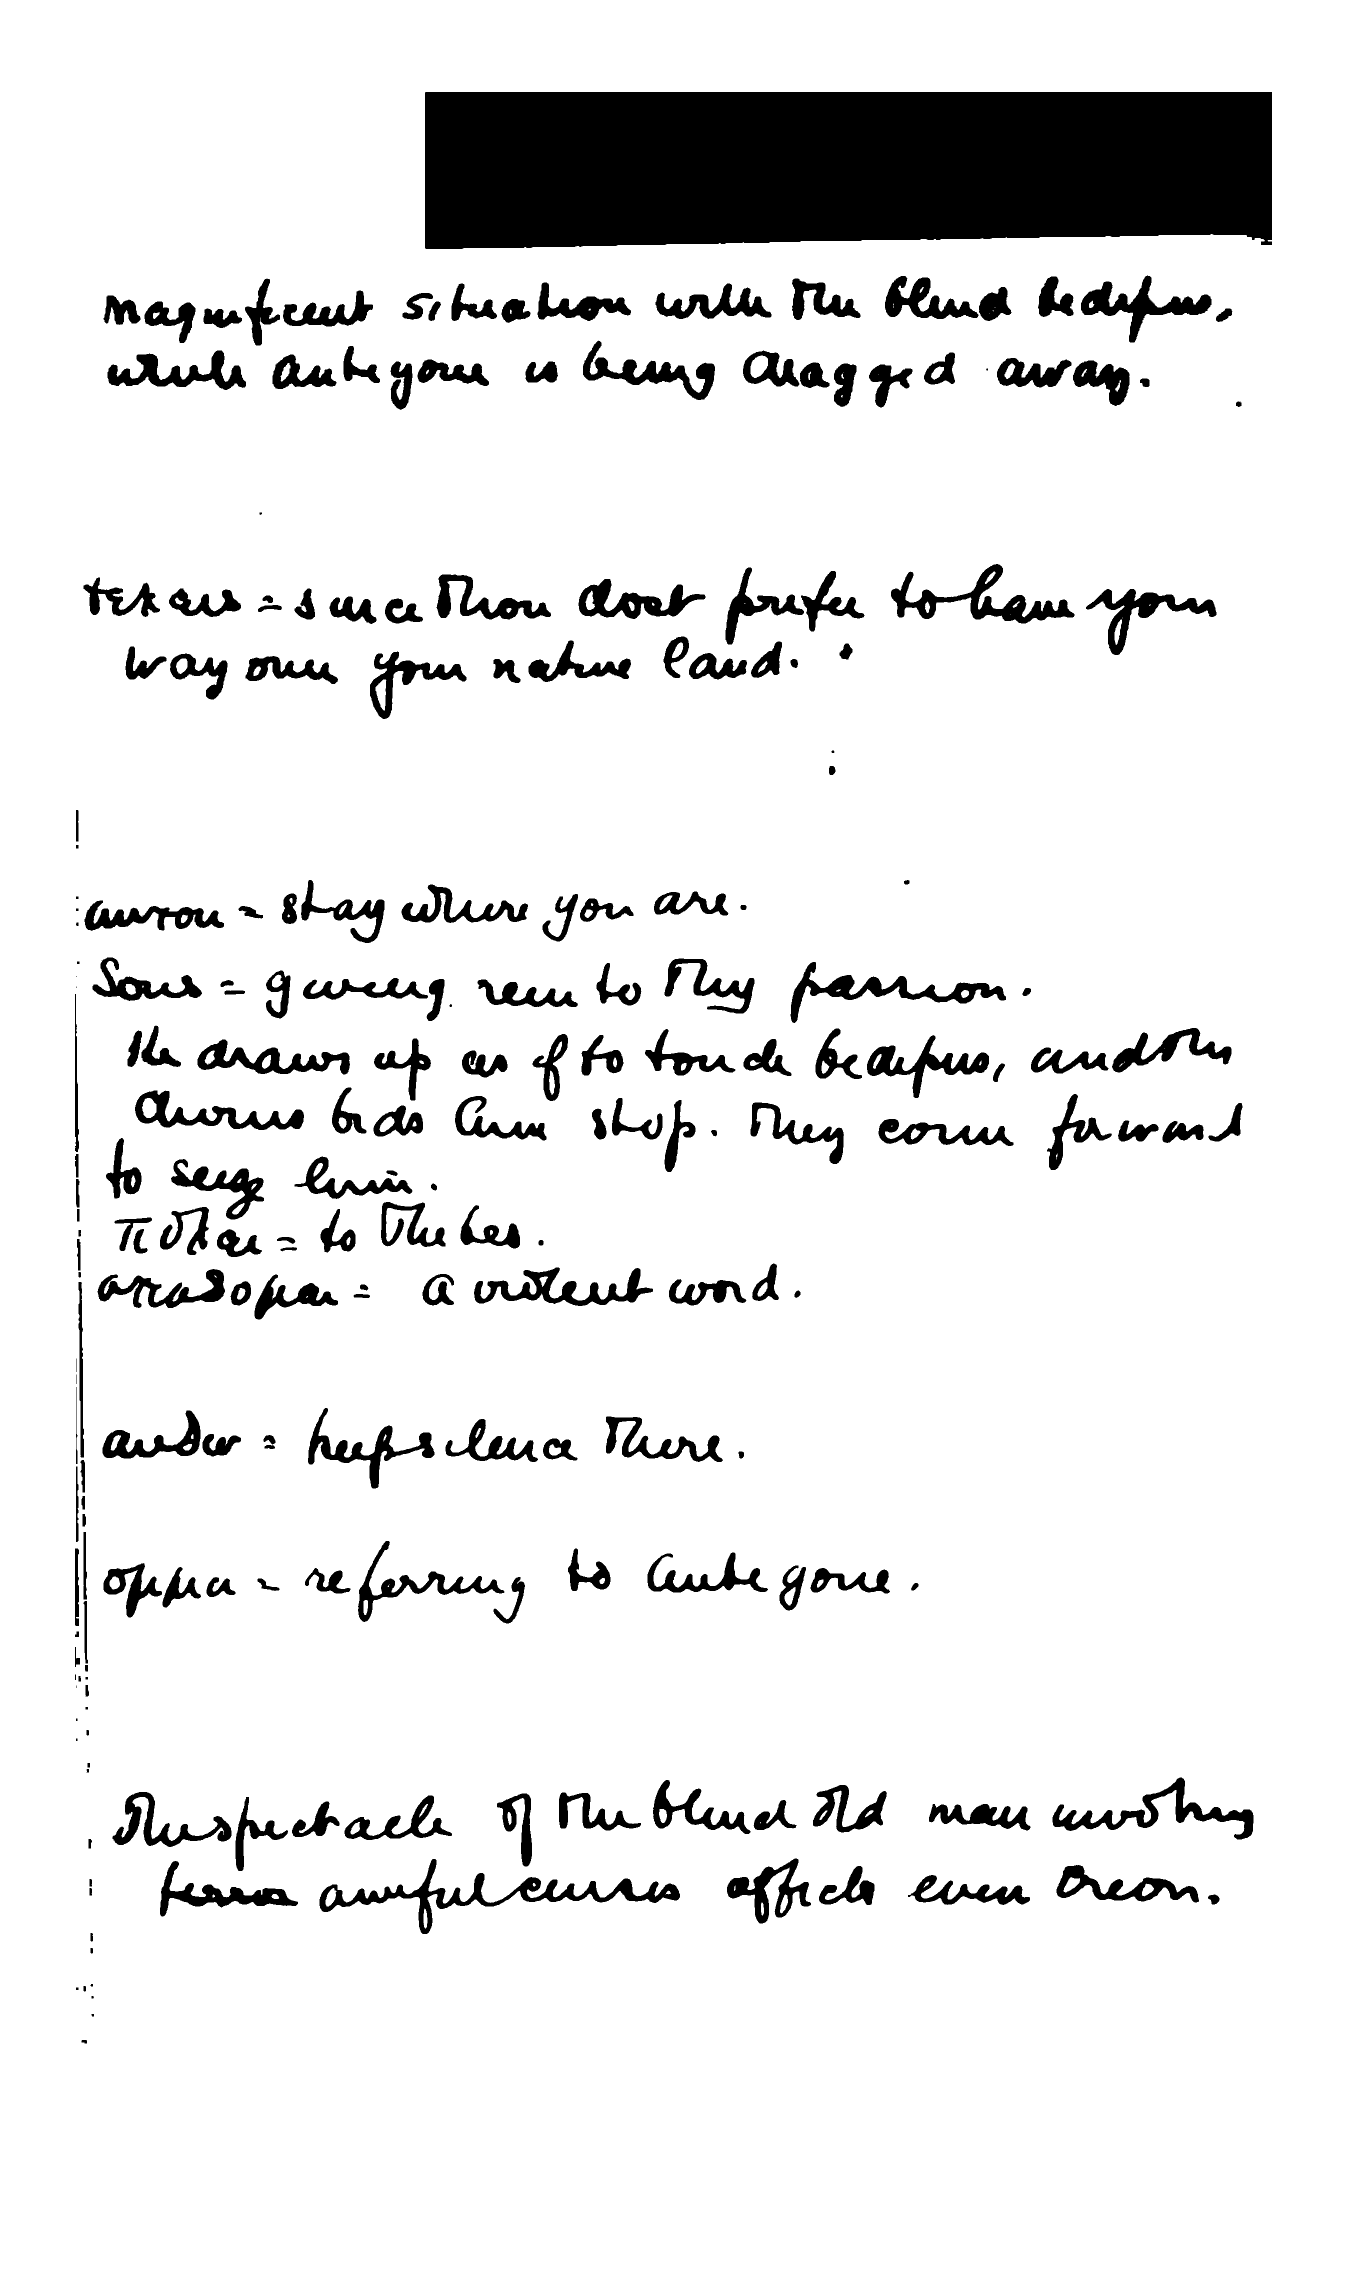 magnificent situation with the blind Oedipus,
while Antigone is being dragged away.
since thou dost prefer to have your
way over your native land.
αυτου = stay where you are.
δους = giving rein to thy passion.
He draws up as if to touch Oedipus, and the
Chorus bids him stop. They come forward
to seize him.
πόλει = to Thebes.
= a violent word.
αυδω = keep silence there.
ομμα = referring to Antigone.
The spectacle of the blind old man invoking
awful curses affects even Creon.